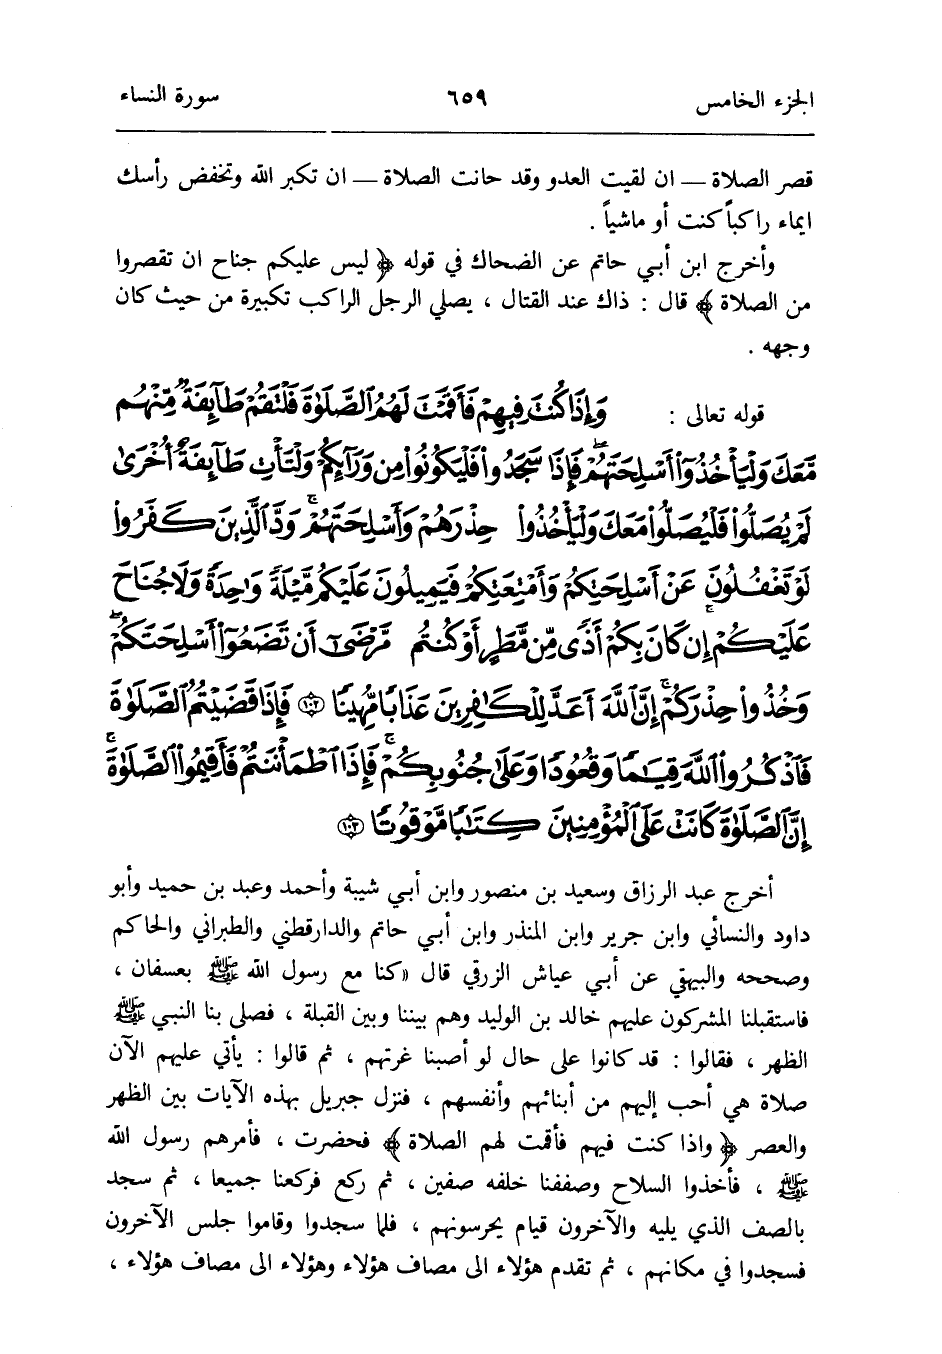 الجزء الخامس ٦٥٩ سورة النساء
قصر الصلاة — ان لقيت العدو وقد حانت الصلاة — ان تكبر الله وتخفض رأسك
ايماء راكباً كنت أو ماشياً .
وأخرج ابن أبي حاتم عن الضحاك في قوله ﴿ ليس عليكم جناح ان تقصروا
من الصلاة ﴾ قال : ذاك عند القتال ، يصلي الرجل الراكب تكبيرة من حيث كان
وجهه .
قوله تعالى : وَإِذَا كُنتَ فِيهِمْ فَأَقَمْتَ لَهُمُ ٱلصَّلَوٰةَ فَلْتَقُمْ طَآئِفَةٌ مِّنْهُم
مَّعَكَ وَلْيَأْخُذُوٓا۟ أَسْلِحَتَهُمْ ۖ فَإِذَا سَجَدُوا۟ فَلْيَكُونُوا۟ مِن وَرَآئِكُمْ وَلْتَأْتِ طَآئِفَةٌ أُخْرَىٰ
لَمْ يُصَلُّوا۟ فَلْيُصَلُّوا۟ مَعَكَ وَلْيَأْخُذُوا۟ حِذْرَهُمْ وَأَسْلِحَتَهُمْ ۗ وَدَّ ٱلَّذِينَ كَفَرُوا۟
لَوْ تَغْفُلُونَ عَنْ أَسْلِحَتِكُمْ وَأَمْتِعَتِكُمْ فَيَمِيلُونَ عَلَيْكُم مَّيْلَةً وَٰحِدَةً ۚ وَلَا جُنَاحَ
عَلَيْكُمْ إِن كَانَ بِكُمْ أَذًى مِّن مَّطَرٍ أَوْ كُنتُم مَّرْضَىٰٓ أَن تَضَعُوٓا۟ أَسْلِحَتَكُمْ ۖ
وَخُذُوا۟ حِذْرَكُمْ ۗ إِنَّ ٱللَّهَ أَعَدَّ لِلْكَٰفِرِينَ عَذَابًا مُّهِينًا ١٠٢ فَإِذَا قَضَيْتُمُ ٱلصَّلَوٰةَ
فَٱذْكُرُوا۟ ٱللَّهَ قِيَٰمًا وَقُعُودًا وَعَلَىٰ جُنُوبِكُمْ ۚ فَإِذَا ٱطْمَأْنَنتُمْ فَأَقِيمُوا۟ ٱلصَّلَوٰةَ ۚ
إِنَّ ٱلصَّلَوٰةَ كَانَتْ عَلَى ٱلْمُؤْمِنِينَ كِتَٰبًا مَّوْقُوتًا ١٠٣
أخرج عبد الرزاق وسعيد بن منصور وابن أبي شيبة وأحمد وعبد بن حميد وأبو
داود والنسائي وابن جرير وابن المنذر وابن أبي حاتم والدارقطني والطبراني والحاكم
وصححه والبيهقي عن أبي عياش الزرقي قال «كنا مع رسول الله ﷺ بعسفان ،
فاستقبلنا المشركون عليهم خالد بن الوليد وهم بيننا وبين القبلة ، فصلى بنا النبي ﷺ
الظهر ، فقالوا : قد كانوا على حال لو أصبنا غرتهم ، ثم قالوا : يأتي عليهم الآن
صلاة هي أحب إليهم من أبنائهم وأنفسهم ، فنزل جبريل بهذه الآيات بين الظهر
والعصر ﴿ واذا كنت فيهم فأقمت لهم الصلاة ﴾ فحضرت ، فأمرهم رسول الله
ﷺ ، فأخذوا السلاح وصففنا خلفه صفين ، ثم ركع فركعنا جميعا ، ثم سجد
بالصف الذي يليه والآخرون قيام يحرسونهم ، فلما سجدوا وقاموا جلس الآخرون
فسجدوا في مكانهم ، ثم تقدم هؤلاء الى مصاف هؤلاء وهؤلاء الى مصاف هؤلاء ،